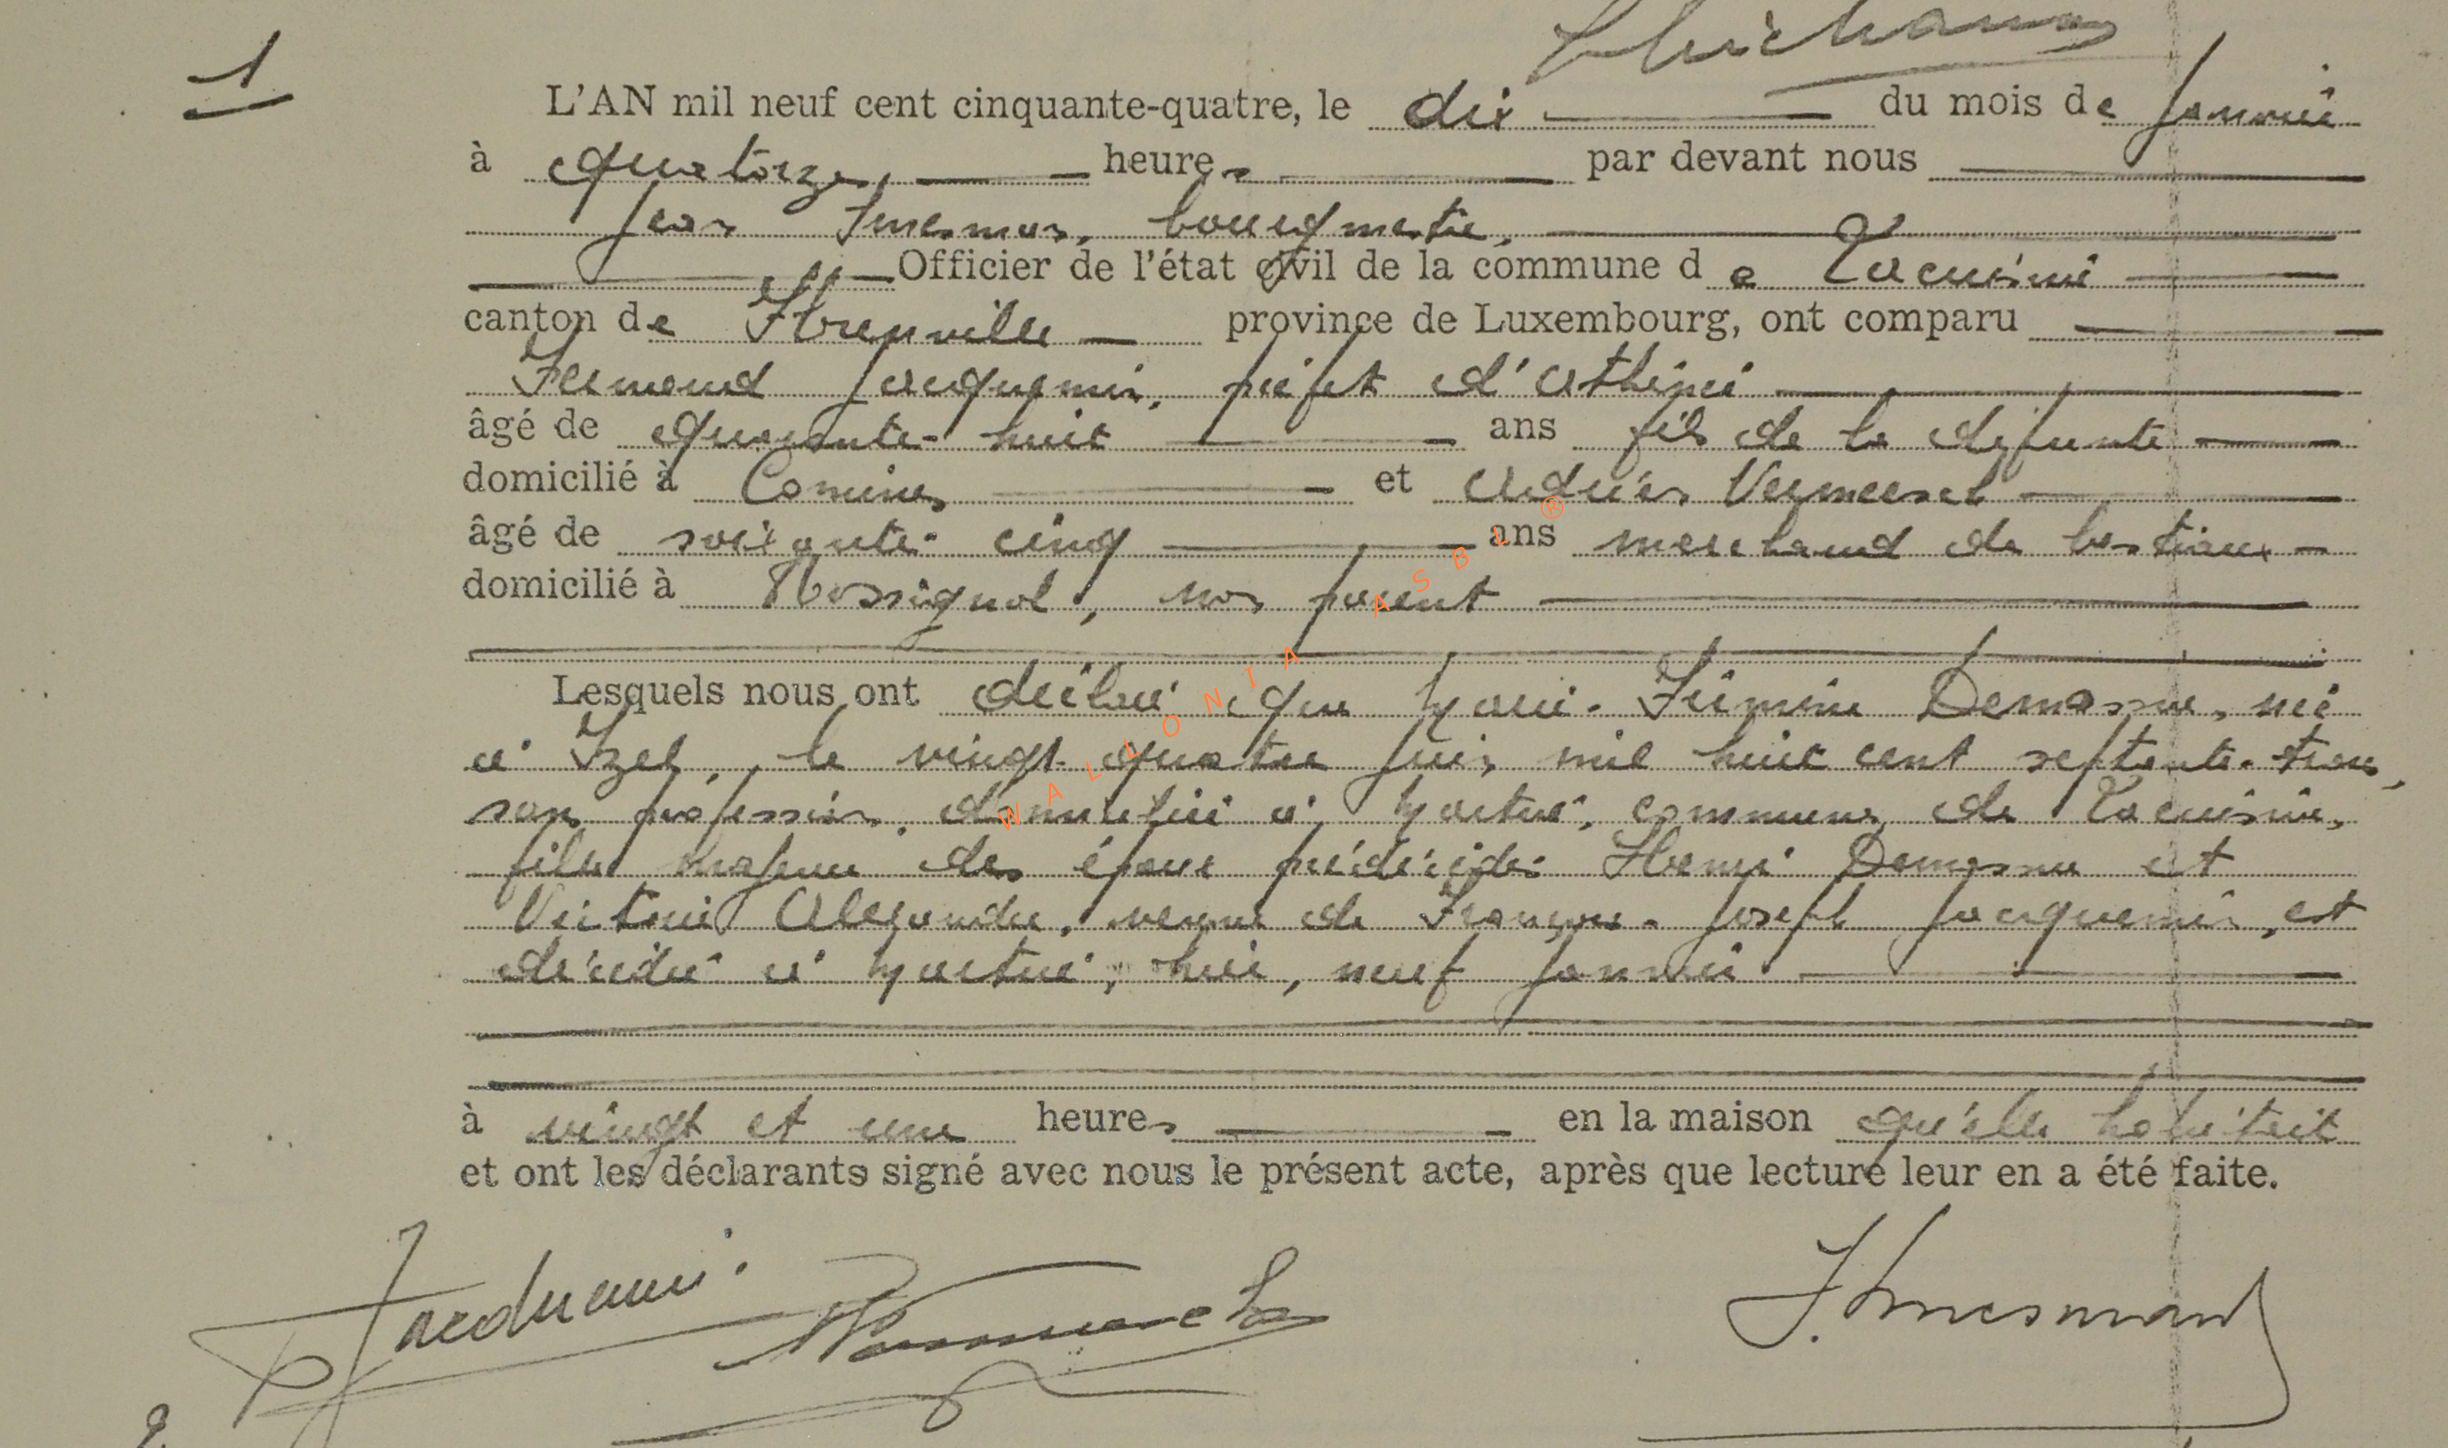 1
L'AN mil neuf cent cinquante-quatre, le dix du mois de Janvier
à quatorze heures par devant nous
Jean bourgmestre,
Officier de l'état civil de la commune de Lacuisine
canton de Florenville province de Luxembourg, ont comparu
Fernand Jacquemin, préfet d'athénée
âgé de quarante-huit ans fils de la défunte
domicilié à Comines et Adrien Vermeersch
âgé de soixante-cinq ans marchand de bestiaux
domicilié à Rossignol, non parent
Lesquels nous ont déclaré que Marie-Firmine Demasne, née
à Izel, le vingt-quatre juin mil huit cent septante-trois,
sans profession, domiciliée à Martué, commune de Lacuisine,
fille majeure des époux prédécédés Henri Demasne et
Victoire Alexandre, veuve de François-Joseph Jacquemin, est
décédée à Martué, hier, neuf janvier
à vingt et une heures en la maison qu'elle habitait
et ont les déclarants signé avec nous le présent acte, après que lecture leur en a été faite.
Jacquemin
WALLONIA ASBL ®
2